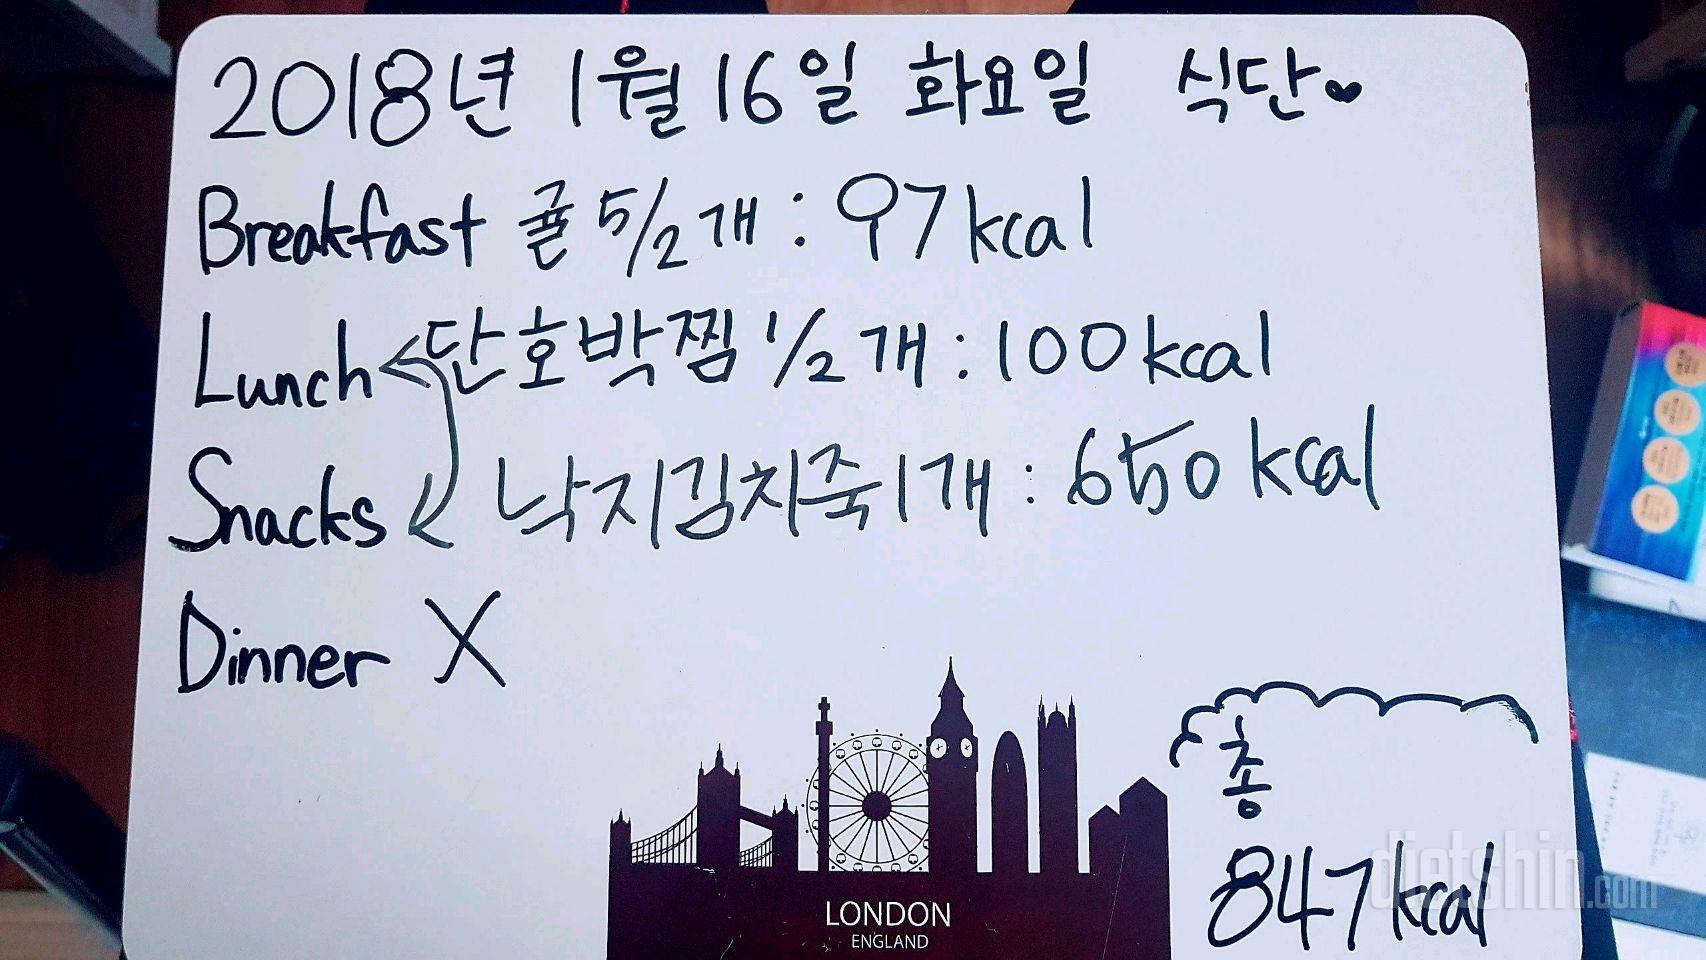 2018년 1월 16일 화요일 식단♥
Breakfast 귤 5/2개 : 97kcal
Lunch 단호박찜 1/2개 : 100kcal
Snacks 낙지김치죽1개 : 650kcal
Dinner X
총
847kcal
LONDON
ENGLAND
dietshin.com